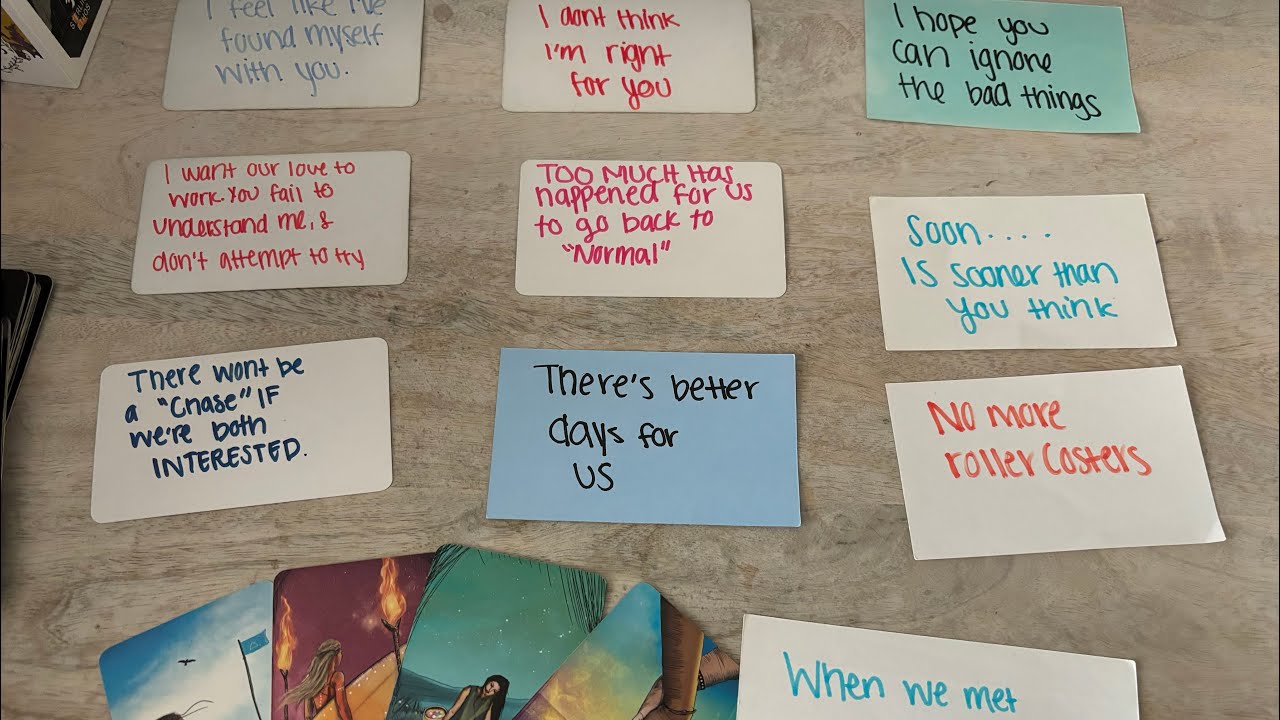 I feel like I've
found myself
with you.
I dont think
I'm right
for you
I hope you
can ignore
the bad things
I want our love to
work. You fail to
understand me, &
don't attempt to try
TOO MUCH HAS
happened for us
to go back to
"Normal"
Soon....
IS sooner than
you think
There wont be
a "Chase" IF
we're both
INTERESTED.
There's better
days for
US
No more
roller Costers
When we met